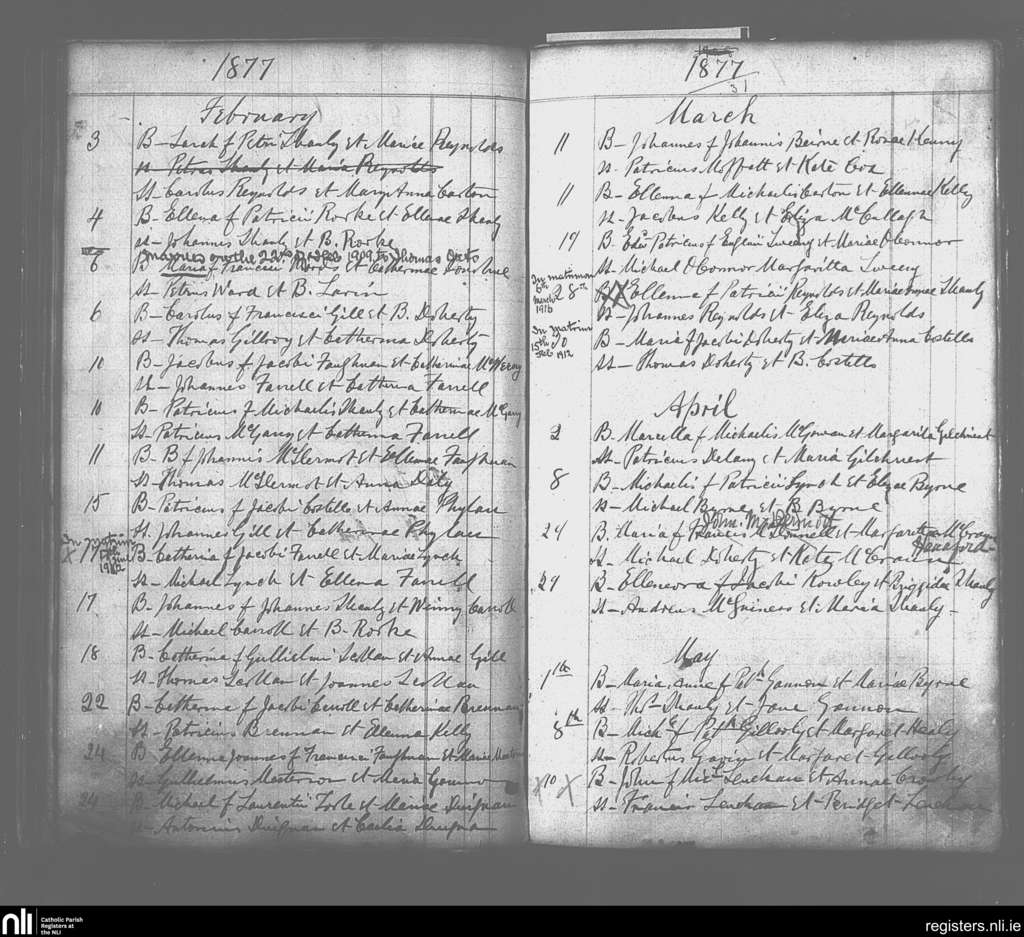 1877
February
3 B- Sarah f Petri Shanly et Mariae Reynolds
st- Petrus Shanly et Maria Reynolds
St- Carolus Reynolds et Mary Anna Carton
4 B- Ellena f Patricii Rorke et Ellenae Shanly
st- Johannes Shanly et B. Rorke
Married on the 22nd 1909 to Thomas
6 B Maria f Francisci et Catherinae
St- Petrus Ward et B. Lavin
6 B- Carolus f Francisci Gill et B. Doherty
St- Thomas Gillroy et Catherina Doherty
10 B- Jacobus f Jacobi Faughnan et Catherinae
St- Johannes Farrell et Catherina Farrell
10 B- Patricius f Michaelis Shanly et Catherinae McGarry
St- Patricius McGarry et Catherina Farrell
11 B- B f Johannis McDermot et Ellenae Faughnan
St- Thomas McDermot et Anna Daly
15 B- Patricius f Jacobi Costello et Annae Phylan
St. Johannes Gill et Catherinae Phylan
In Matrim
June 1912
X 17 B- Catherina f Jacobi Farrell et Mariae Lynch
St- Michael Lynch et Ellena Farrell
17 B- Johannes f Johannes Shanly et Winny Carroll
St- Michael Carroll et B- Rorke
18 B- Catherina f Gullielmi et Annae Gill
St- Thomas et Joannes
22 B- Catherina f Jacobi Carroll et Catherinae Brennan
St- Patricius Brennan et Ellenna Kelly
24 B Ellenna Joannes f Francisci Faughnan et Mariae
St- Gullielmus Masterson et Maria
24 B- Michael f Laurentii et Mariae Duignan
st- Antonius Duignan et Cecilia
1877
31
March
11 B- Johannes f Johannis Beirne et Rosae Henry
st- Patricius Moffatt et Kate Cox
11 B- Ellenna f Michaelis Carton et Ellennae Kelly
st- Jacobus Kelly et Eliza McCullagh
19 B Patricius f Eugenii Sweeny et Mariae O Connor
St- Michael O Connor Margaritta Sweeny
In matrimon
6th
March
1916
28th B Ellenna f Patricii Reynolds et Mariae Annae Shanly
St- Johannes Reynolds et Eliza Reynolds
In Matrim
15th
Feb 1912
30 B- Maria f Jacobi Doherty et Mariae Anna Costello
st- Thomas Doherty et B. Costello
April
2 B- Marcella f Michaelis McGowan et Margarita Gilchriest
St- Patricius Delany et Maria Gilchriest
8 B- Michaelis f Patricii Lynch et Elizae Byrne
st- Michael Byrne et B Byrne
John McDermott
24 B. Maria f Francis McDonnell et Margaret McCrann
st- Michael Doherty et Kate McCrann
29 B- Ellenora f Jacobi Rowley et Briggida Shanly
st- Andreus McGuiness et Maria Shanly-
May
1th B- Maria Anne f Patk Gannon et Mariae Byrne
st- Thos Shanly et Jane Gannon
8th B- Michl f Patk Gillooly et Margaret Healy
st- Robertus et Margaret Gillooly
X 10 X B- John f Micl Lenehan et Annae
st- Francis Lenehan et Bridget Lenehan
nli
Catholic Parish
Registers at
the NLI
registers.nli.ie